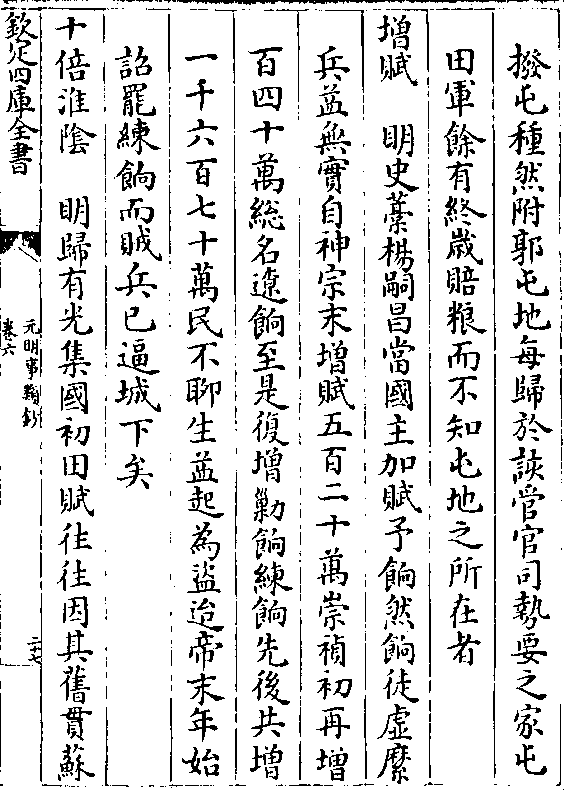 撥屯種然附郭屯地每歸於該管官司勢要之家屯
田軍餘有終歳賠粮而不知屯地之所在者
増賦　明史藁楊嗣昌當國主加賦予餉然餉徒虛縻
兵益無實自神宗末増賦五百二十萬崇禎初再増
百四十萬総名遼餉至是復増勦餉練餉先後共増
一千六百七十萬民不聊生益起為盜迨帝末年始
詔罷練餉而賊兵已逼城下矣
十倍淮陰　明歸有光集國初田賦往往因其舊貫蘇
欽定四庫全書
元明事類鈔
卷六
二七